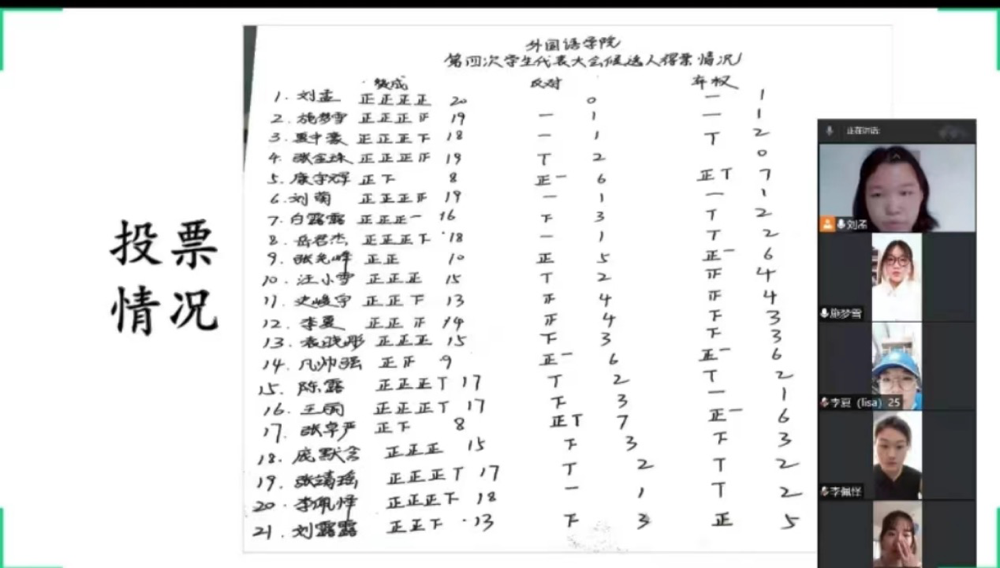 投票
情况
外国语学院
第四次学生代表大会候选人得票情况
赞成 反对 弃权
1. 刘孟 正正正正 20 0 一 1
2. 施梦雪 正正正正 19 一 1 一 1
3. 正正正下 18 一 1 T 2
4. 张金珠 正正正正 19 T 2 0
5. 康宇辉 正下 8 正一 6 正T 7
6. 刘菊 正正正正 19 一 1 一 1
7. 白露露 正正正一 16 下 3 T 2
8. 岳君杰 正正正下 18 一 1 T 2
9. 正正 10 正 5 正一 6
10. 汪小雪 正正正 15 T 2 正 4
11. 史峻宇 正正下 13 正 4 正 4
12. 李夏 正正正 14 正 4 下 3
13. 袁晓彤 正正正 15 下 3 下 3
14. 凡帅强 正正 9 正一 6 正一 6
15. 陈露 正正正T 17 T 2 T 2
16. 王雨 正正正T 17 下 3 一 1
17. 张宇严 正下 8 正T 7 正一 6
18. 庞默含 正正正 15 下 3 下 3
19. 张靖瑶 正正正T 17 T 2 T 2
20. 李佩怿 正正正下 18 一 1 T 2
21. 刘露露 正正下 13 下 3 正 5
正在讲话:
施梦雪
李夏（lisa）25
李佩怿